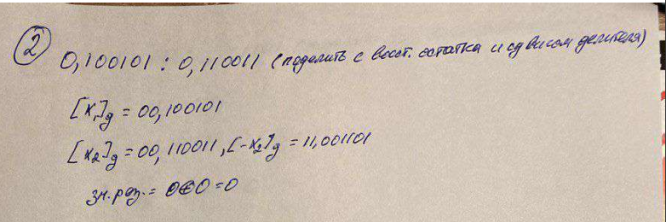 2
0,100101 : 0,110011 (поделить с восст. остатка и сдвигом делителя)
[x₁]g = 00,100101
[x₂]g = 00,110011, [-x₂]g = 11,001101
зн. рез. = 0⊕0 = 0